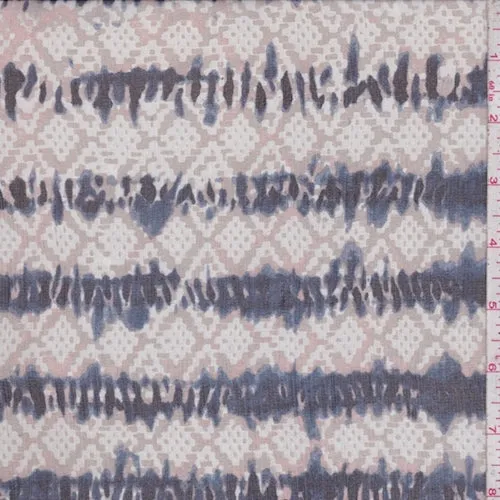 1
5"
2
3
4
5
6
7
8